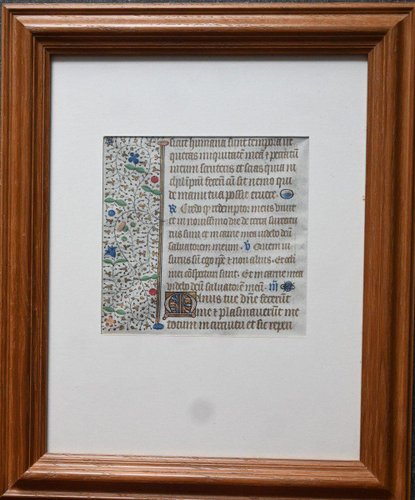 sicut humana sunt tempora ut
queras iniquitatē meā ⁊ peccatū
meum scruteris et scias quia ni
chil īpiū fecerī cū sit nemo qui
de manu tua possit eruere.
R Credo q redemptor meus vivit
et in novissimo die de terra surrectu
rus sum et in carne mea videbo deū
salvatorem meum. V Quem visu
rus sū ego ipē ⁊ non alius. Et oculi
mei cōspecturi sunt. Et in carne mea
videbo deū salvatorem meū.
Manus tue dn̄e fecerūt
me ⁊ plasmaverūt me
totum in circuitu et sic repē